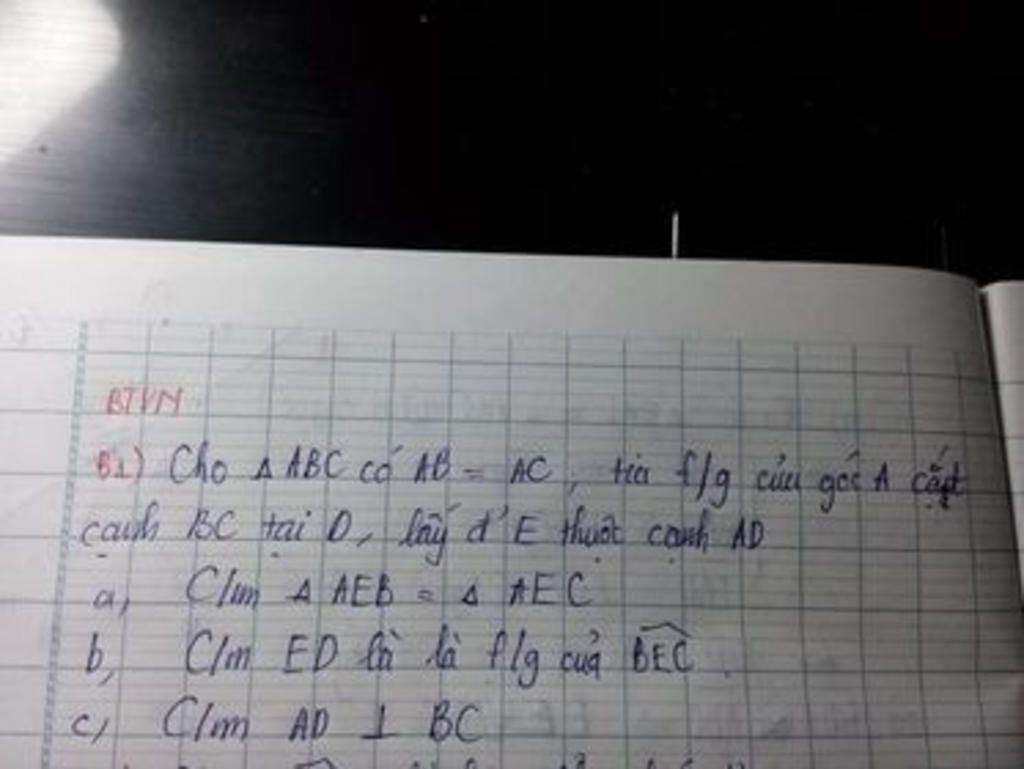 BTVN
B1) Cho Δ ABC có AB = AC, tia f/g của góc A cắt
cạnh BC tại D, lấy đ' E thuộc cạnh AD
a, C/m Δ AEB = Δ AEC
b, C/m ED là là f/g của BEC.
c, C/m AD ⊥ BC